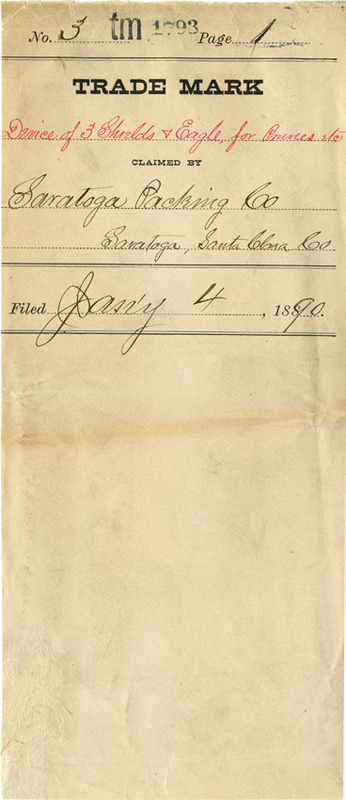 No. 3 tm 1793 Page 1
TRADE MARK
Device of 3 Shields & Eagle, for Prunes etc
CLAIMED BY
Saratoga Packing Co
Saratoga, Santa Clara Co
Filed Jan'y 4, 1890.